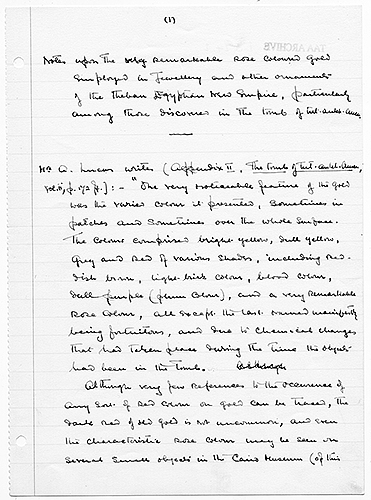 (1)
TAA ARCHIVE
Notes upon the very Remarkable Rose Coloured Gold
Employed in Jewellery and other ornaments
of the Theban Egyptian New Empire, particularly
among those discovered in the tomb of Tut.ankh.Amen
Mr A. Lucas writes (Appendix II, The Tomb of Tut.ankh.Amen,
Vol. II, p. 172 ff.) : - "One very noticeable feature of the gold
was the varied colour it presented, sometimes in
patches and sometimes over the whole surface.
The colours comprised bright yellow, dull yellow,
Grey and Red of various shades, including red-
dish brown, light-brick colour, blood colour,
dull purple (plum colour), and a very Remarkable
Rose Colour, all except the last named manifestly
being fortuitous, and due to chemical changes
that had taken place during the time the objects
had been in the tomb.
Although very few references to the occurrence of
any sort of Red Colour on gold can be traced, the
dark Red of old gold is not uncommon, and even
the characteristic Rose Colour may be seen on
several small objects in the Cairo Museum (of this